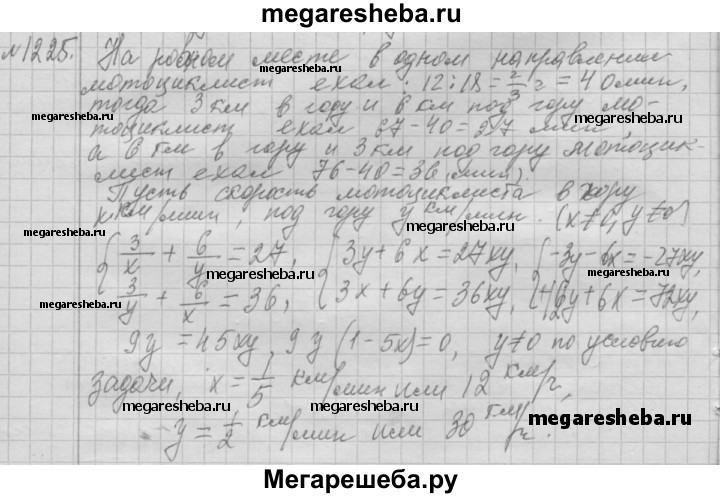 megaresheba.ru
№1225. На ровном месте в одном направлении
мотоциклист ехал: 12:18 = 2/3 ч = 40 мин,
megaresheba.ru megaresheba.ru
тогда 3 км в гору и 6 км под гору мо-
тоциклист ехал 67-40=27 мин,
megaresheba.ru megaresheba.ru
а 6 км в гору и 3 км под гору мотоцик-
лист ехал 76-40=36 (мин).
Пусть скорость мотоциклиста в гору
x км/мин, под гору y км/мин. (x≠0, y≠0)
megaresheba.ru megaresheba.ru
{ 3/x + 6/y = 27, { 3y+6x=27xy, { -3y-6x=-27xy,
megaresheba.ru megaresheba.ru
3/y + 6/x = 36, 3x+6y=36xy, 12y+6x=72xy,
megaresheba.ru megaresheba.ru
9y = 45xy, 9y(1-5x)=0, y≠0 по условию
megaresheba.ru megaresheba.ru
задачи, x = 1/5 км/мин или 12 км/ч,
megaresheba.ru megaresheba.ru
y = 1/2 км/мин или 30 км/ч.
megaresheba.ru
Мегарешеба.ру